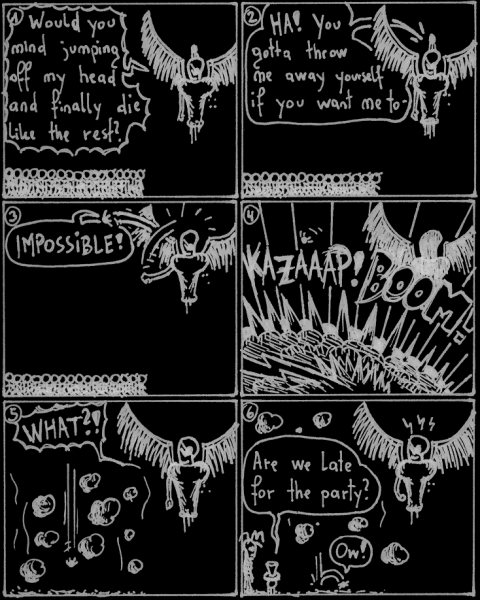 1
Would you
mind jumping
off my head
and finally die
like the rest?
2
HA! You
gotta throw
me away yourself
if you want me to-
3
IMPOSSIBLE!
4
KAZAAAP!
BOOM!
5
WHAT?!
6
Are we late
for the party?
Ow!